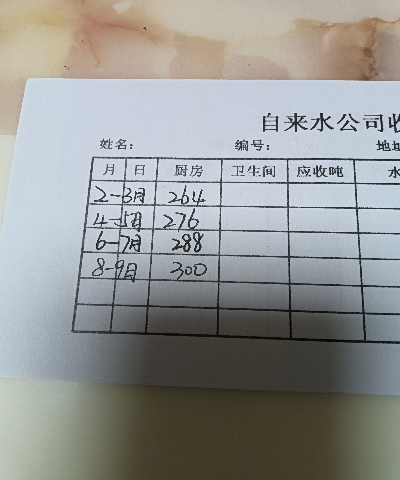 自来水公司收
姓名： 编号： 地址
月 日 厨房 卫生间 应收吨 水
2-3月 264
4-5月 276
6-7月 288
8-9月 300